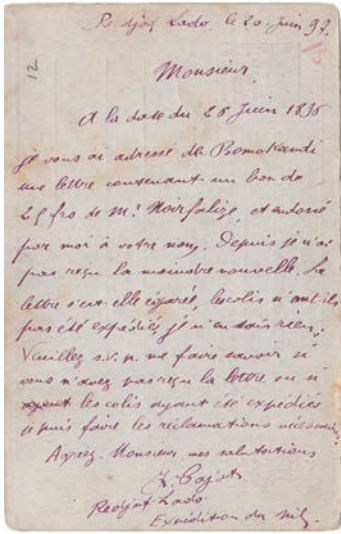 Redjaf Lado, le 20 juin 97.
12
Monsieur
A la date du 26 Juin 1896
je vous ai adressé de Bomokandi
une lettre contenant un bon de
25 frs de Mr Noirfalize, et endossé
par moi à votre nom. Depuis je n'ai
pas reçu la moindre nouvelle. La
lettre s'est elle égarée, les colis n'ont ils
pas été expédiés, je n'en sais rien.
Veuillez s.v.p. me faire savoir si
vous n'avez pas reçu la lettre ou si
les colis ayant été expédiés
je puis faire les réclamations nécessaires.
Agréez, Monsieur, mes salutations
Cajot
Redjaf Lado
Expédition du Nil.